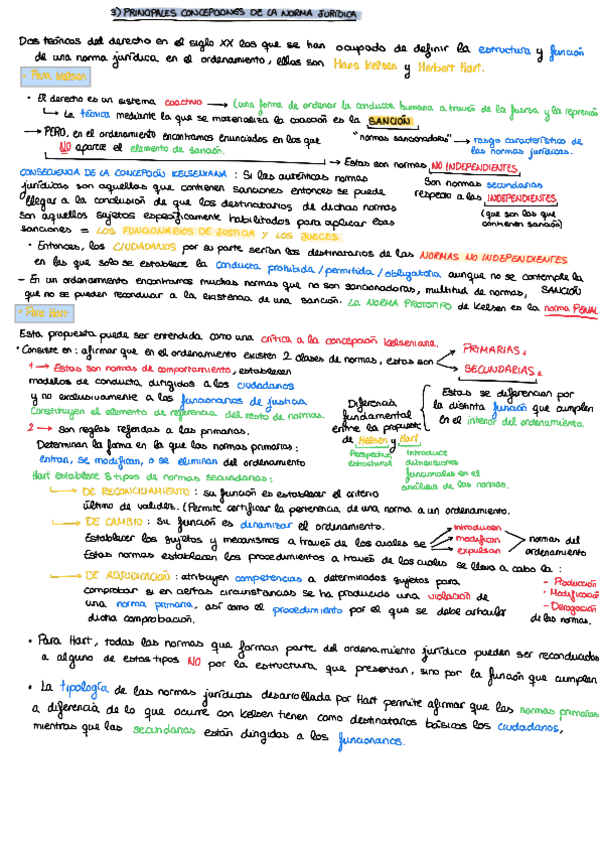 3) PRINCIPALES CONCEPCIONES DE LA NORMA JURÍDICA
Dos teóricos del derecho en el siglo XX los que se han ocupado de definir la estructura y función
de una norma jurídica en el ordenamiento, ellos son Hans Kelsen y Herbert Hart.
• Para Kelsen
• El derecho es un sistema coactivo → (una forma de ordenar la conducta humana a través de la fuerza y la represión
↳ La técnica mediante la que se materializa la coacción es la SANCIÓN
→ PERO, en el ordenamiento encontramos enunciados en los que "normas sancionadoras" → rasgo característico de
NO aparece el elemento de sanción. las normas jurídicas.
→ Estas son normas NO INDEPENDIENTES
CONSECUENCIA DE LA CONCEPCIÓN KELSENIANA: Si las auténticas normas Son normas secundarias
jurídicas son aquellas que contienen sanciones entonces se puede respecto a las INDEPENDIENTES
llegar a la conclusión de que los destinatarios de dichas normas (que son las que
son aquellos sujetos específicamente habilitados para aplicar esas contienen sanción)
sanciones = LOS FUNCIONARIOS DE JUSTICIA Y LOS JUECES
• Entonces, los CIUDADANOS por su parte serían los destinatarios de las NORMAS NO INDEPENDIENTES
en las que solo se establece la conducta prohibida / permitida / obligatoria aunque no se contemple la
SANCIÓN
- En un ordenamiento encontramos muchas normas que no son sancionadoras, multitud de normas,
que no se pueden reconducir a la existencia de una sanción. LA NORMA PROTOTIPO de Kelsen es la norma PENAL
• Para Hart
Esta propuesta puede ser entendida como una crítica a la concepción kelseniana.
• Consiste en: afirmar que en el ordenamiento existen 2 clases de normas, estas son PRIMARIAS 1
SECUNDARIAS 2
1 → Estas son normas de comportamiento, establecen
modelos de conducta dirigidos a los ciudadanos
y no exclusivamente a los funcionarios de justicia.
Constituyen el elemento de referencia del resto de normas.
Diferencia
fundamental
entre la propuesta
de Kelsen y Hart
Perspectiva
estructural
Introduce
dimensiones
funcionales en el
análisis de las normas.
Estas se diferencian por
la distinta función que cumplen
en el interior del ordenamiento.
2 → son reglas referidas a las primarias.
Determinan la forma en la que las normas primarias:
entran, se modifican, o se eliminan del ordenamiento
Hart establece 3 tipos de normas secundarias:
↳ DE RECONOCIMIENTO: su función es establecer el criterio
último de validez. (Permite certificar la pertenencia de una norma a un ordenamiento.
↳ DE CAMBIO: su función es dinamizar el ordenamiento.
Establecer los sujetos y mecanismos a través de los cuales se introducen
modifican
expulsan
normas del
ordenamiento
Estas normas establecen los procedimientos a través de los cuales se lleva a cabo la:
- Producción
- Modificación
- Derogación
de las normas.
↳ DE ADJUDICACIÓN: atribuyen competencias a determinados sujetos para
comprobar si en ciertas circunstancias se ha producido una violación de
una norma primaria, así como el procedimiento por el que se debe articular
dicha comprobación.
• Para Hart, todas las normas que forman parte del ordenamiento jurídico pueden ser reconducidas
a alguno de estos tipos NO por la estructura que presentan, sino por la función que cumplen
• La tipología de las normas jurídicas desarrollada por Hart permite afirmar que las normas primarias
a diferencia de lo que ocurre con Kelsen tienen como destinatarios básicos los ciudadanos,
mientras que las secundarias están dirigidas a los funcionarios.